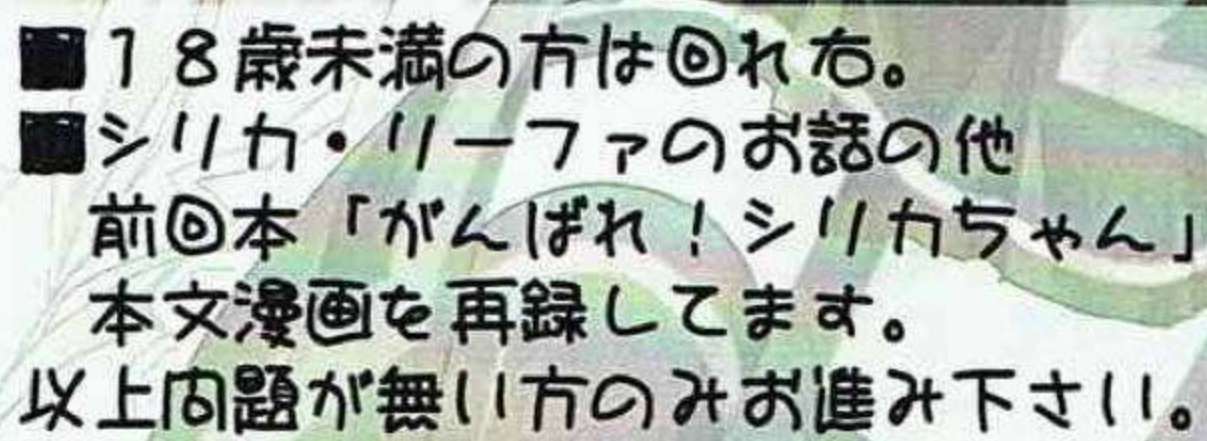 ■１８歳未満の方は回れ右。
■シリカ・リーファのお話の他
前回本「がんばれ！シリカちゃん」
本文漫画を再録してます。
以上問題が無い方のみお進み下さい。